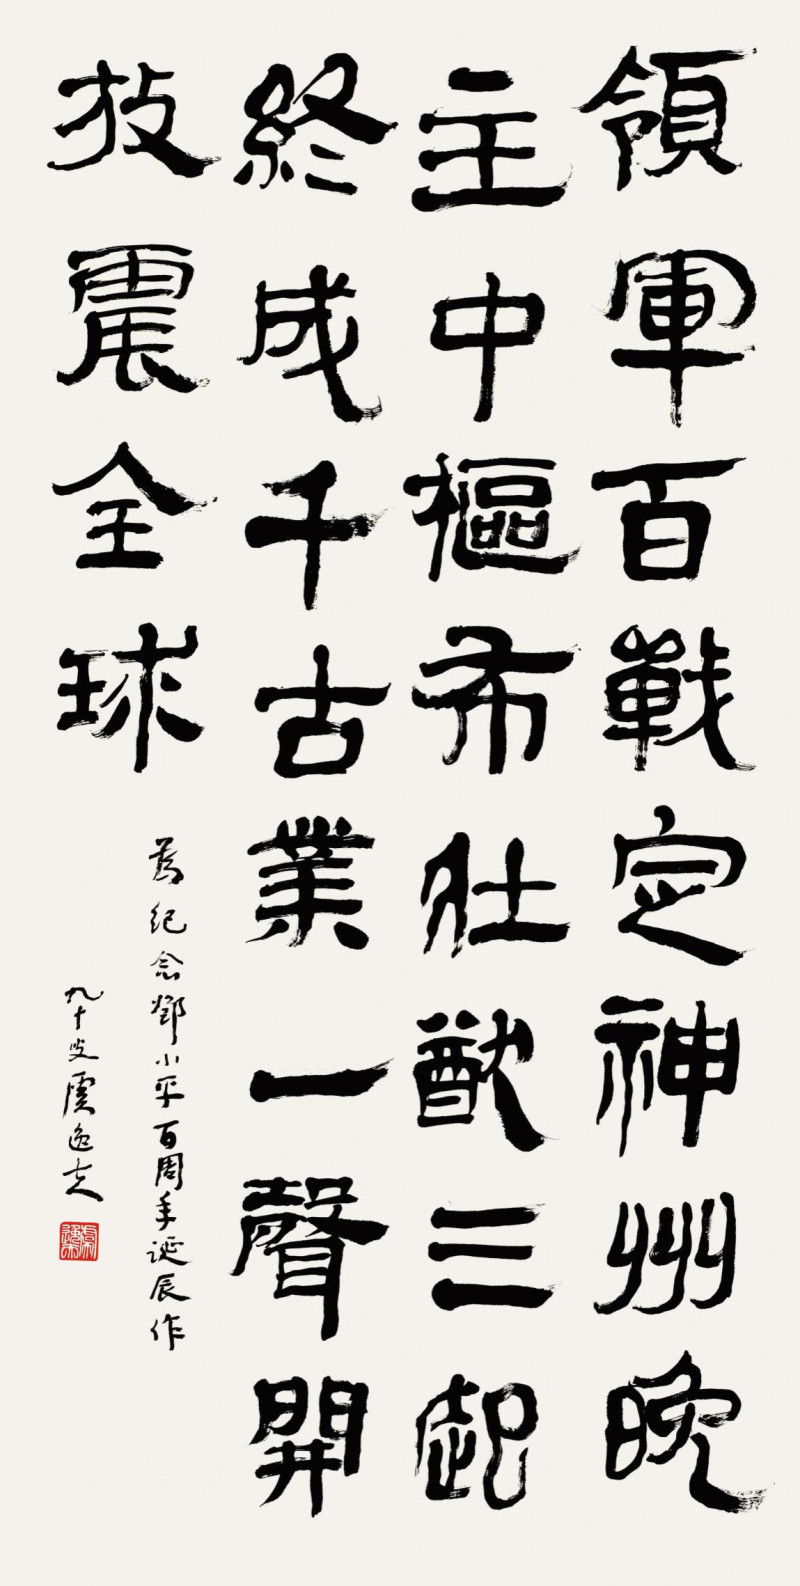 領軍百戰定神州晚
主中樞布壯猷三起
終成千古業一聲開
放震全球
為紀念鄧小平百周年誕辰作
九十叟虞逸夫